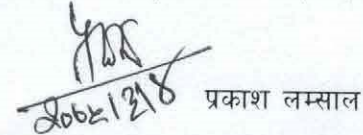 २०७५।३।४ प्रकाश लम्साल